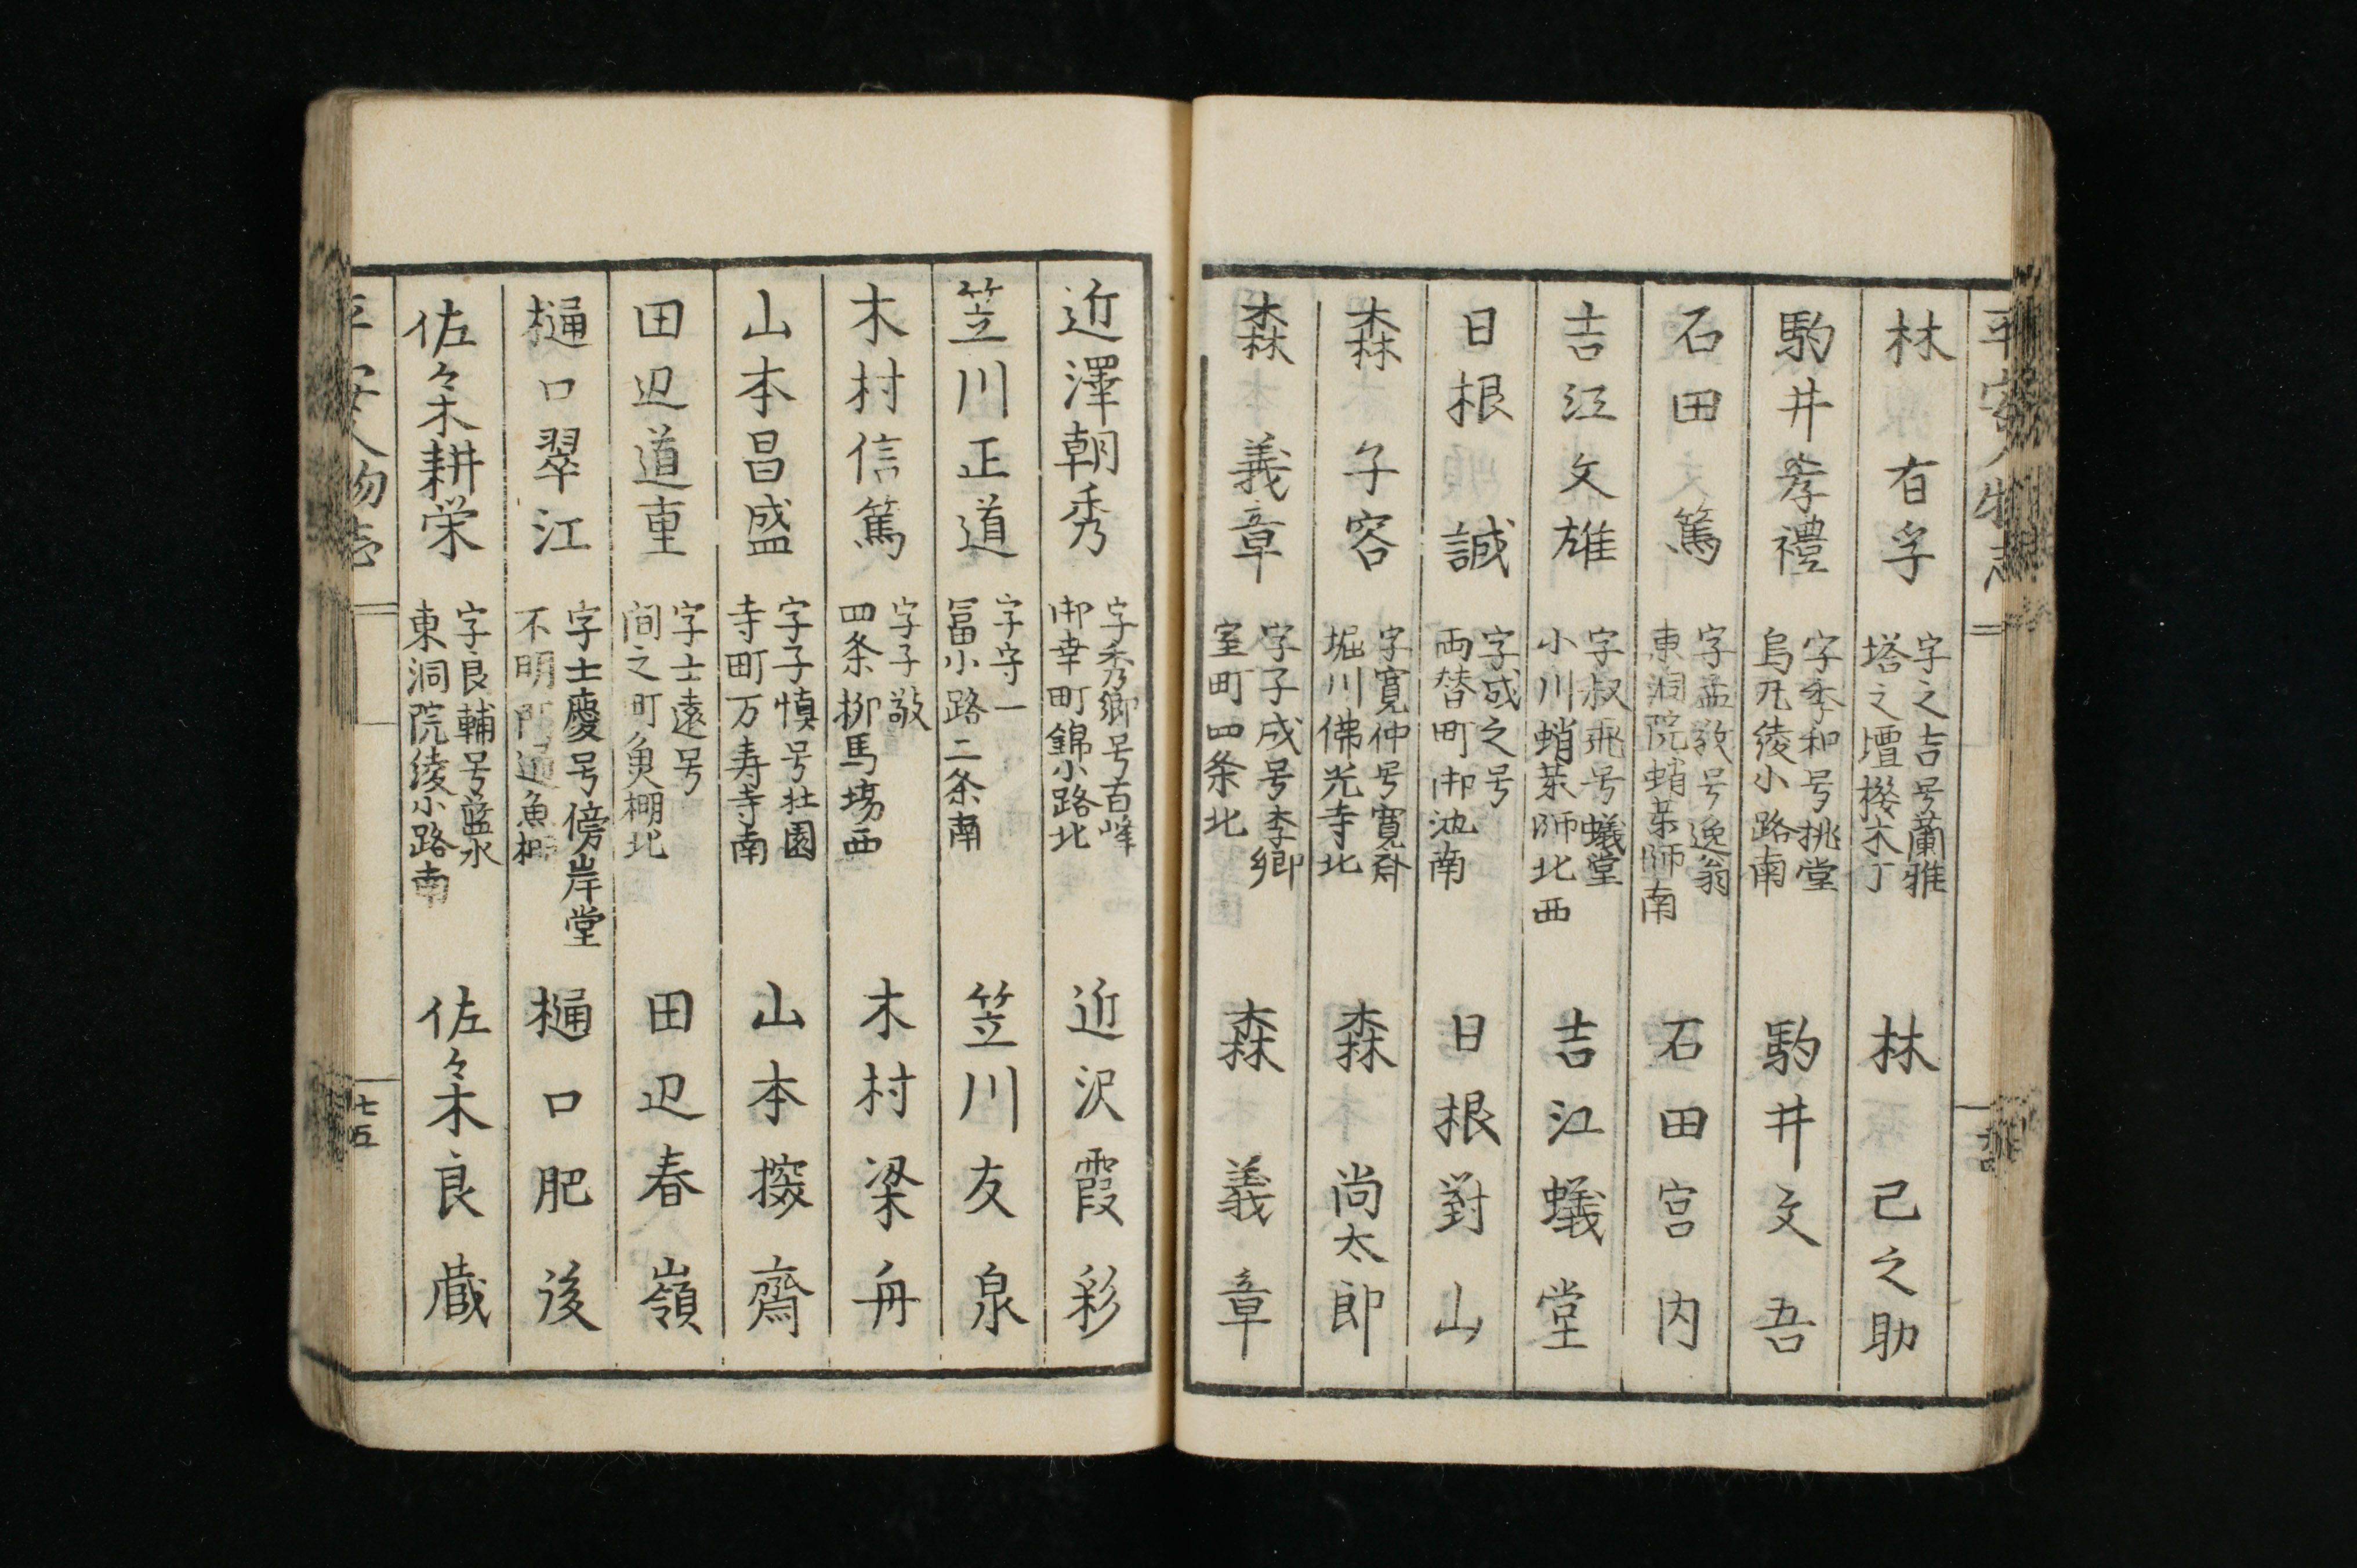 平安人物志
林有孚
字之吉号蘭雅
塔之壇櫻木丁
林己之助
駒井孝禮
字季和号挑堂
烏丸綾小路南
駒井文吾
石田篤
字孟敦号逸翁
東洞院蛸薬師南
石田宮内
吉江文雄
字叔飛号蟻堂
小川蛸薬師北西
吉江蟻堂
日根誠
字成之号
両替町御池南
日根對山
森子容
字寛仲号寛斎
堀川佛光寺北
森尚太郎
森義章
字子成号李卿
室町四条北
森義章
近澤朝秀
字秀卿号百峰
御幸町錦小路北
近沢霞彩
笠川正道
字守一
冨小路二条南
笠川友泉
木村信篤
字子敬
四条柳馬場西
木村梁舟
山本昌盛
字子慎号壮園
寺町万寿寺南
山本探齋
田辺道重
字士遠号
間之町魚棚北
田辺春嶺
樋口翠江
字士慶号傍岸堂
不明門通魚棚
樋口肥後
佐々木耕栄
字良輔号藍水
東洞院綾小路南
佐々木良蔵
平安人物志
七五